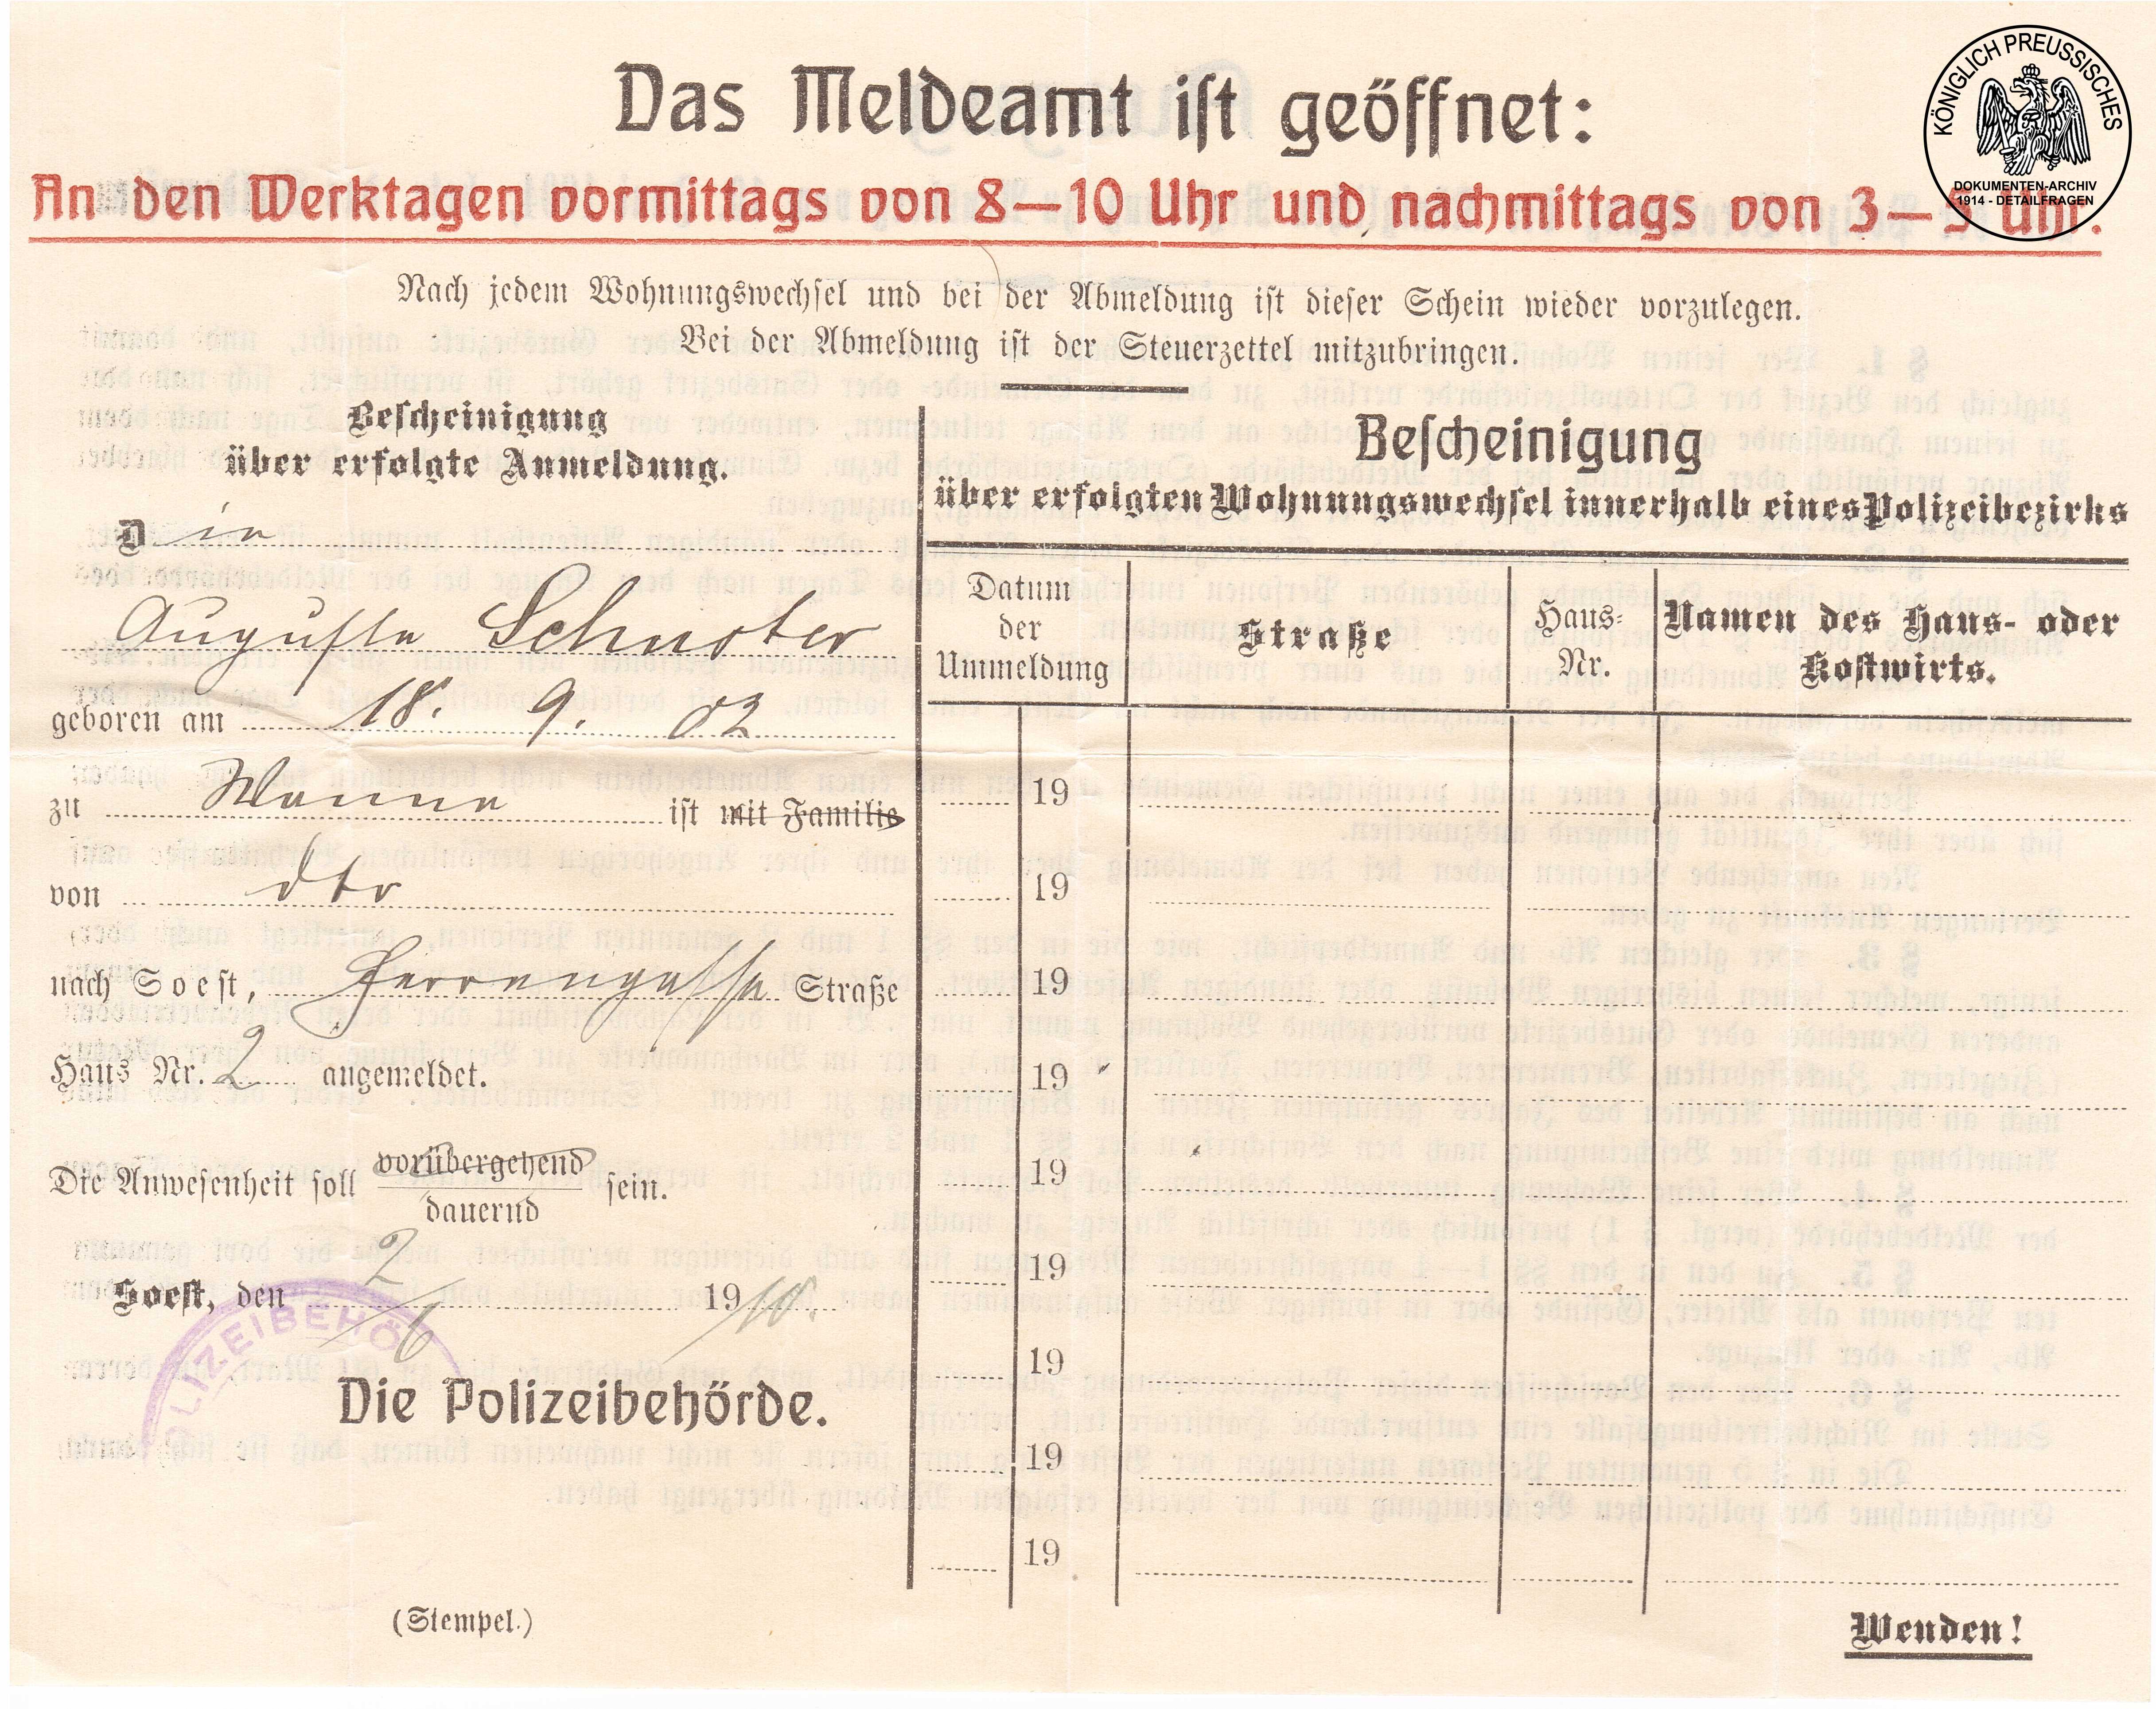 KÖNIGLICH PREUSSISCHES
DOKUMENTEN-ARCHIV
1914 - DETAILFRAGEN
Das Meldeamt ist geöffnet:
An den Werktagen vormittags von 8—10 Uhr und nachmittags von 3—5 Uhr.
Nach jedem Wohnungswechsel und bei der Abmeldung ist dieser Schein wieder vorzulegen.
Bei der Abmeldung ist der Steuerzettel mitzubringen.
Bescheinigung
über erfolgte Anmeldung.
Die
Auguste Schuster
geboren am 18. 9. 82
zu Wanne ist mit Familie
von dto
nach Soest, Herrengasse Straße
Haus Nr. 2 angemeldet.
Die Anwesenheit soll vorübergehend sein.
dauernd
Soest, den 2/6 1910.
POLIZEIBEHÖ
Die Polizeibehörde.
(Stempel.)
Bescheinigung
über erfolgten Wohnungswechsel innerhalb eines Polizeibezirks
Datum der Ummeldung
Straße
Haus-Nr.
Namen des Haus- oder Kostwirts.
19
19
19
19
19
19
19
19
19
Wenden!